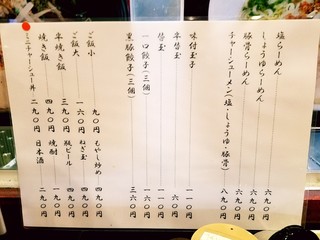 塩らーめん 六九〇円
しょうゆらーめん 六九〇円
豚骨らーめん 六九〇円
チャーシューメン(塩・しょうゆ・豚骨) 八九〇円
味付玉子 一一〇円
半替玉 六〇円
替玉 一一〇円
一口餃子(三個) 一六〇円
黒豚餃子(三個) 三六〇円
ご飯小 九〇円
ご飯大 一六〇円
半焼き飯 三九〇円
焼き飯 四九〇円
ミニチャーシュー丼 二九〇円
もやし炒め 四九〇円
ねぎ玉 一六〇円
瓶ビール 四九〇円
焼酎 一九〇円
日本酒 二九〇円